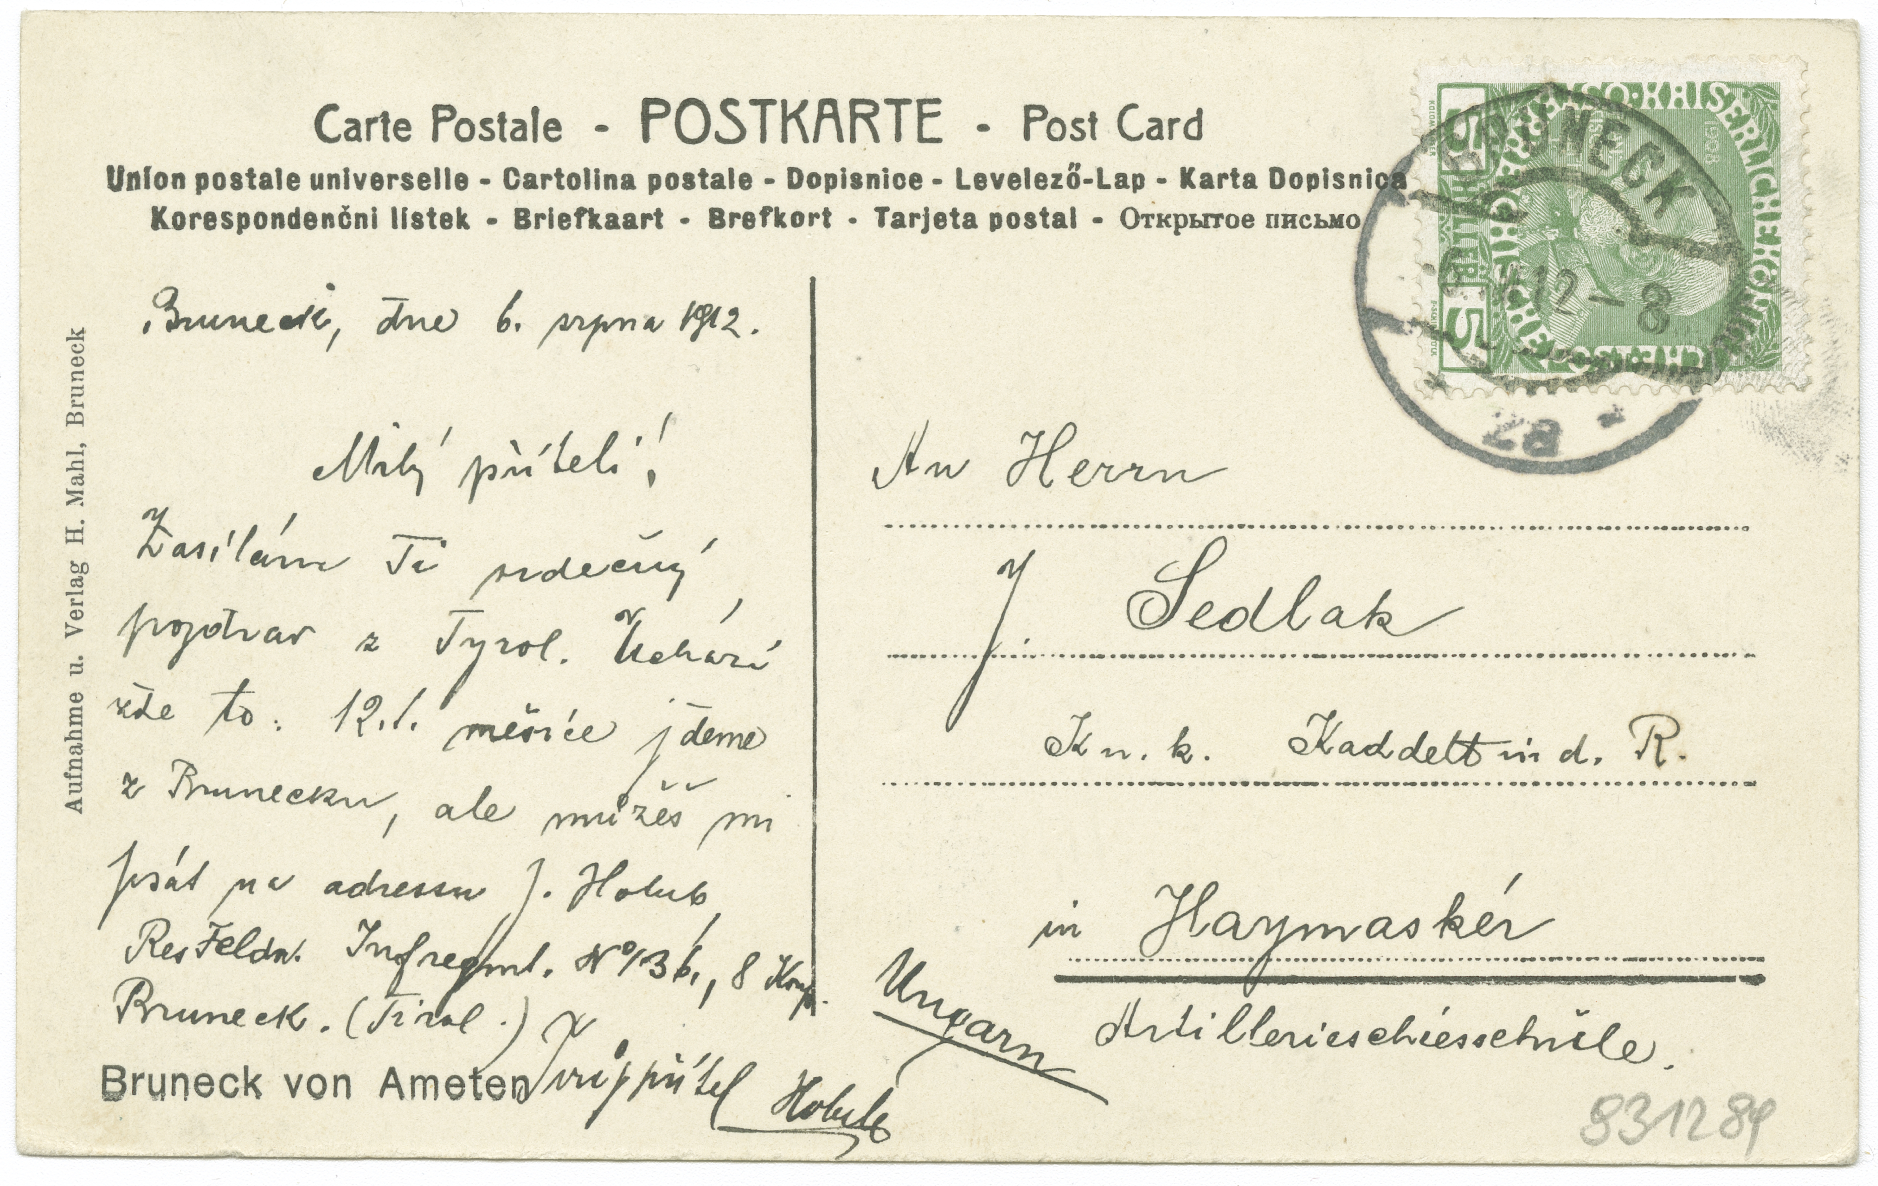 Carte Postale - POSTKARTE - Post Card
Union postale universelle - Cartolina postale - Dopisnice - Levelező-Lap - Karta Dopisnica
Korespondenční lístek - Briefkaart - Brefkort - Tarjeta postal - Открытое письмо
BRUNECK
12 - 8
2a
5
5
1908
Aufnahme u. Verlag H. Mahl, Bruneck
Bruneck, dne 6. srpna 1912.
Milý příteli!
Zasílám Ti srdečný
pozdrav z Tyrol.
zde to. 12. t. měsíce jdeme
z Brunecku, ale můžeš mi
psát na adressu J. Holub,
Infregmt. No 36., 8 Komp.
Bruneck. (Tirol.)
Tvůj přítel Holub
Bruneck von Ameten
An Herrn
J. Sedlak
K u. k. Kaddett in d. R.
in Haymaskér
Ungarn
Artillerieschiesschule.
931289